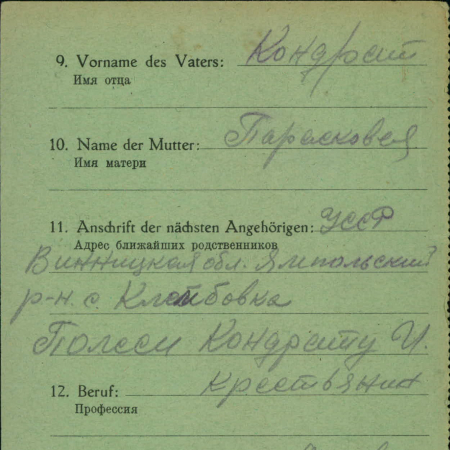 9. Vorname des Vaters: Кондрат
Имя отца
10. Name der Mutter: Парасковея
Имя матери
11. Anschrift der nächsten Angehörigen: УССР
Адрес ближайших родственников
Винницкая обл. Ямпольский
р-н. с Клембовка
Кондрату И.
12. Beruf: Крестьянин
Профессия